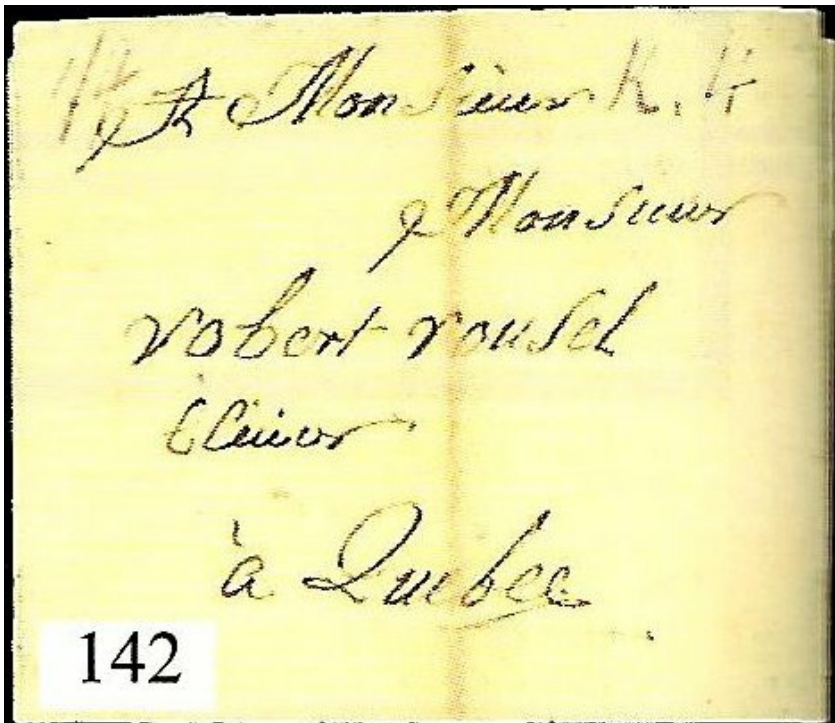 A Monsieur
Monsieur
robert rousel
à Quebec
142